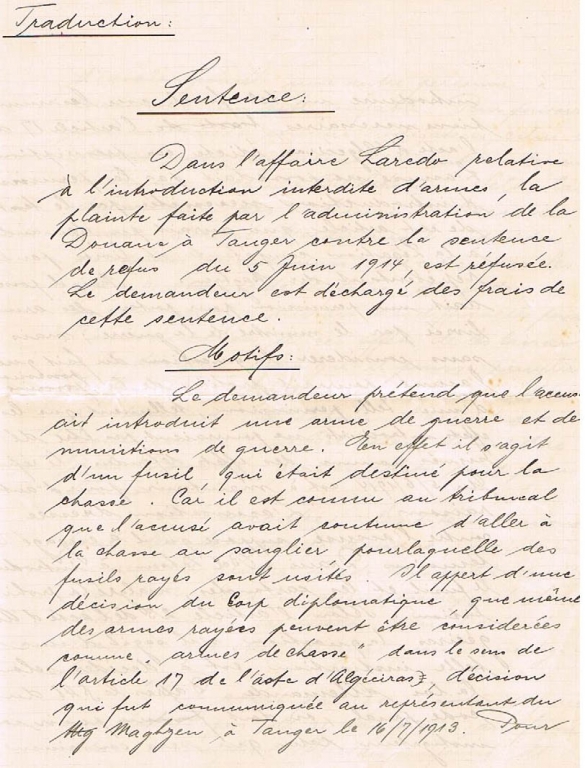 Traduction:
Sentence:
Dans l'affaire Laredo relative
à l'introduction interdite d'armes, la
plainte faite par l'administration de la
Douane à Tanger contre la sentence
de refus du 5 Juin 1914, est réfusée.
Le demandeur est déchargé des frais de
cette sentence.
Motifs:
Le demandeur prétend que l'accus
ait introduit une arme de guerre et de
munitions de guerre. En effet il s'agit
d'un fusil qui était destiné pour la
chasse. Car il est connu au tribunal
que l'accusé avait coutume d'aller à
la chasse au sanglier pourlaquelle des
fusils rayés sont usités. Il appert d'une
décision du Corp diplomatique que même
des armes rayées peuvent être considerées
comme "armes de chasse" dans le sens de
l'article 17 de l'acte d'Algéciras, décision
qui fut communiquée au représentant du
Maghzen à Tanger le 16/7/1913. Pour